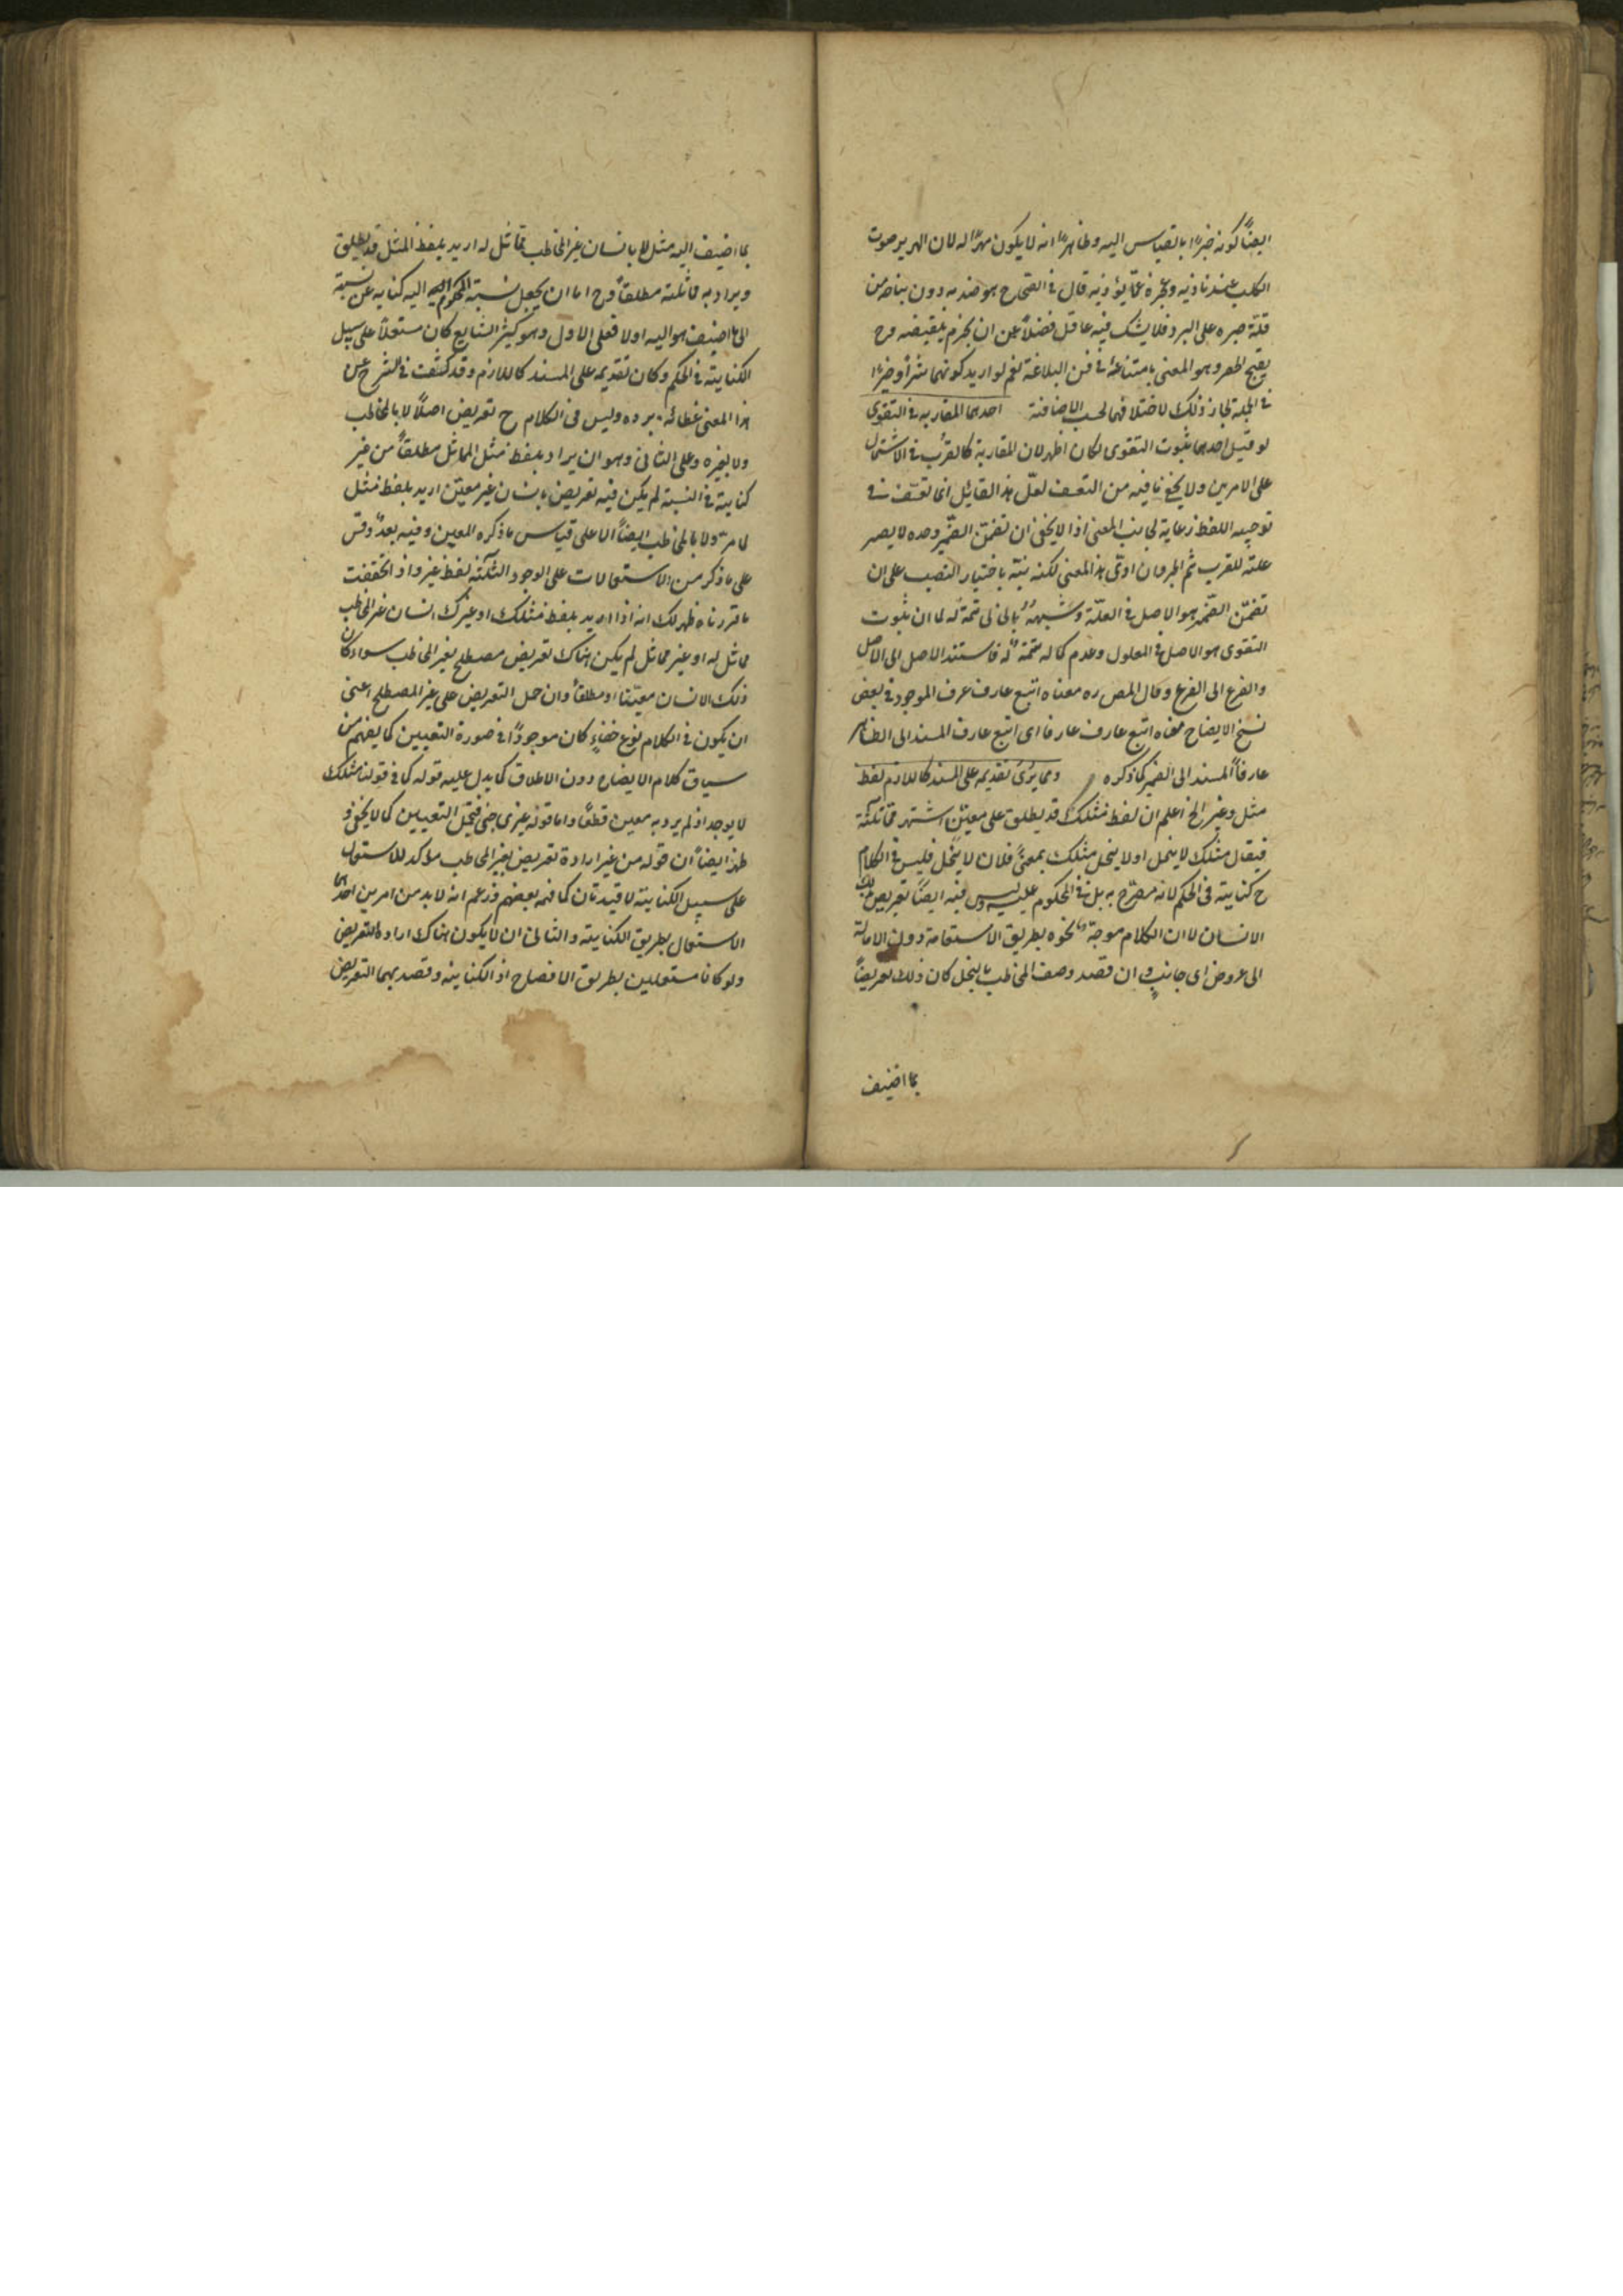 ايضاً كونه خيرا بالقياس اليه وظاهر انه لا يكون مهرا له لان الهرير صوت
الكلب عند تاذيه وعجزه عما يؤذيه قال في الصحاح هو ضد به دون نباحه من
قلة صبره على البرد فلا يشك فيه عاقل فضلاً عن ان يجزم بنقيضه وح
يقبح الحصر وهو المعنى بامتناعه في فن البلاغة نعم لو اريد كونهما شراً وخيرا
في الجملة لجاز ذلك لاختلافهما بحسب الاضافة احدهما المقاربه في التقوى
لو قيل احدهما ثبوت التقوى لكان اظهر لان المقاربة كالقرب في الاشتمال
على الامرين ولا يخفى ما فيه من التعسف لعل هذا القائل انما تعسف في
توجيه اللفظ رعاية لجانب المعنى اذ لا يخفى ان تضمن الضمير وحده لا يصير
علة للقرب ثم الجر وان ادى هذا المعنى لكنه نبه باختيار النصب على ان
تضمن الضمير هو الاصل في العلة وشبهه بالخالي تتمة له لما ان ثبوت
التقوى هو الاصل في المعلول وعدم كماله تتمة له فاستند الاصل الى الاصل
والفرع الى الفرع وقال المص ره معناه اتبع عارف عرف الموجود في بعض
نسخ الايضاح معناه اتبع عارف عارفا اى اتبع عارف المسند الى الظاهر
عارفاً المسند الى الضمير كما ذكره ومما يرى تقديمه على المسند كاللازم لفظ
مثل وغير الخ اعلم ان لفظ مثلك قد يطلق على معين اشتهر بمماثلته
فيقال مثلك لا يبخل او لا يبخل مثلك بمعنى فلان لا يبخل فليس في الكلام
ح كناية في الحكم لانه مصرح به بل في المحكوم عليه وليس فيه ايضاً تعريض بذلك
الانسان لان الكلام موجه نحوه بطريق الاستقامة دون الامالة
الى عروض اى جانب وان قصد وصف المخاطب بالبخل كان ذلك تعريضاً
بما اضيف
بما اضيف اليه مثل لا بانسان غير المخاطب مماثل له اريد بلفظ المثل قد يطلق
ويراد به مماثلته مطلقاً وح اما ان يجعل نسبة المحكوم به اليه كناية عن نسبته
الى ما اضيف هو اليه اولا فعلى الاول وهو كثير الشايع كان مستعملاً على سبيل
الكناية في الحكم وكان تقديمه على المسند كاللازم وقد كشفت في الشرح عن
هذا المعنى غطائه برده وليس في الكلام ح تعريض اصلاً لا بالمخاطب
ولا بغيره وعلى الثاني وهو ان يراد بلفظ مثل المماثل مطلقاً من غير
كناية في النسبة لم يكن فيه تعريض بانسان غير معين اريد بلفظ مثل
لما مر ولا بالمخاطب ايضاً الا على قياس ما ذكره المعين وفيه بعد وقس
على ما ذكر من الاستعمالات على الوجوه الثلثة لفظ غير واذا تحققت
ما قررناه ظهر لك انه اذا اريد بلفظ مثلك او غيرك انسان غير المخاطب
مماثل له او غير مماثل لم يكن هناك تعريض مصطلح بغير المخاطب سواء كان
ذلك الانسان معيناً او مطلقاً وان حمل التعريض على غير المصطلح اعنى
ان يكون في الكلام نوع خفاءٍ كان موجوداً في صورة التعيين كما يفهم من
سياق كلام الايضاح دون الاطلاق كما يدل عليه قوله كما في قولنا مثلك
لا يوجد اذ لم يرد به معين قطعاً واما قوله غيرى جنى فيحتمل التعيين كما لا يخفى و
ظهر ايضاً ان قوله من غير ارادة تعريض بغير المخاطب مؤكد للاستعمال
على سبيل الكناية لا قيد ثان كما فهمه بعضهم فزعم انه لا بد من امرين احدهما
الاستعمال بطريق الكناية والثانى ان لا يكون هناك ارادة التعريض
ولو كانا مستعملين بطريق الافصاح او الكناية وقصد بهما التعريض